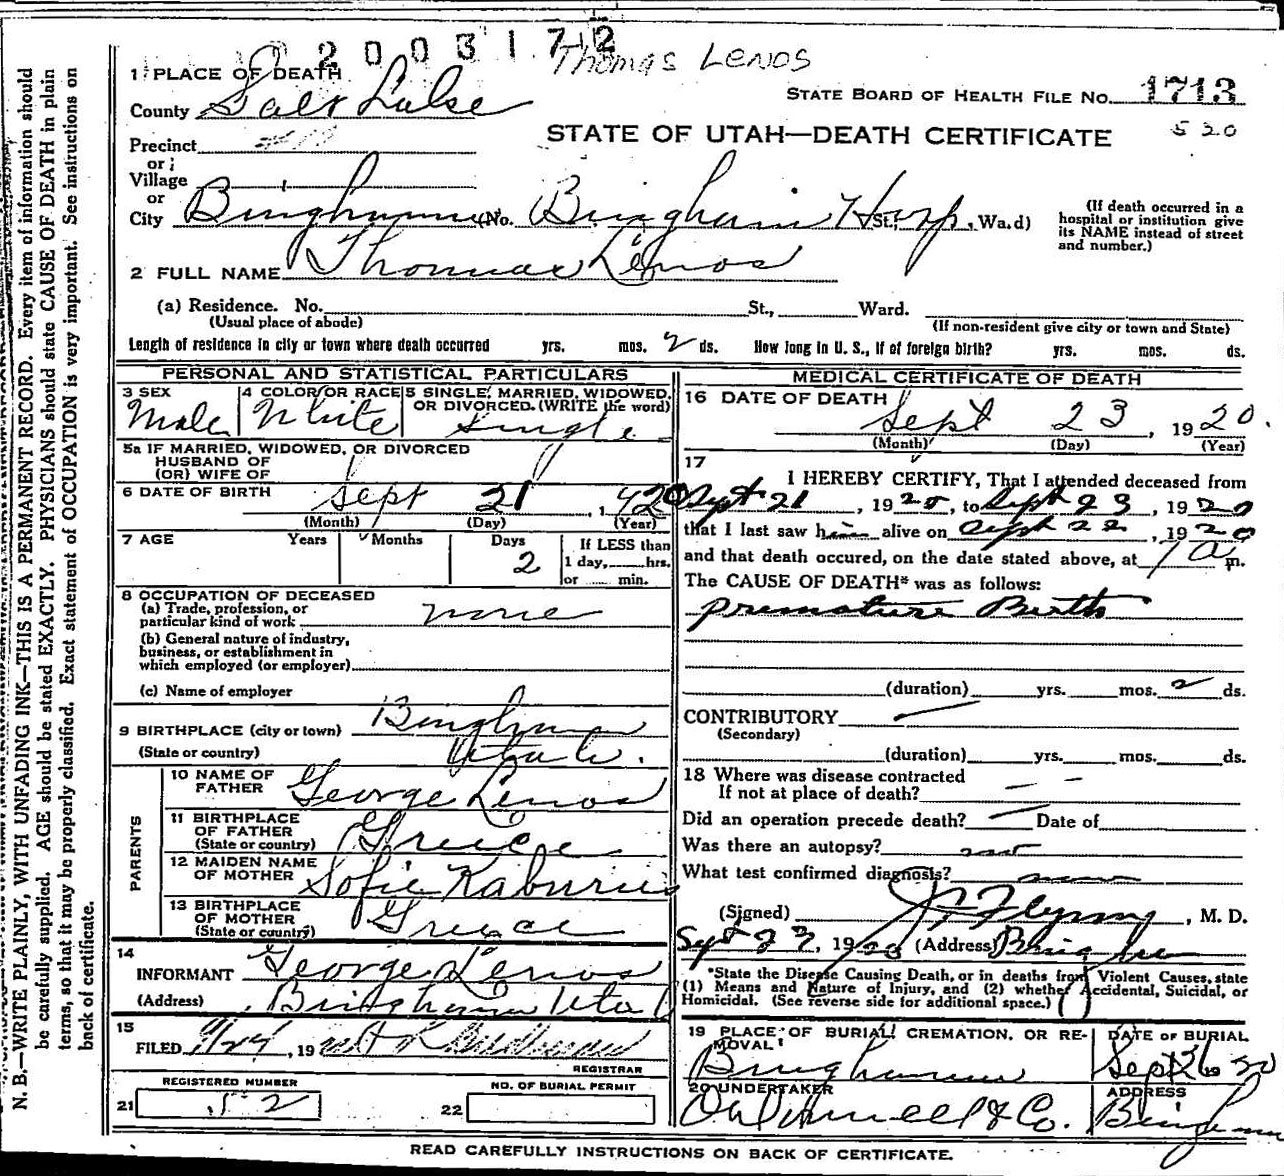 2003172
Thomas Lenos
1 PLACE OF DEATH
County Salt Lake
STATE BOARD OF HEALTH FILE No. 1713
520
STATE OF UTAH—DEATH CERTIFICATE
Precinct
or
Village
or
City Bingham (No. Bingham Hosp St., Ward)
(If death occurred in a hospital or institution give its NAME instead of street and number.)
2 FULL NAME Thomas Lenos
(a) Residence. No. St., Ward.
(Usual place of abode)
(If non-resident give city or town and State)
Length of residence in city or town where death occurred yrs. mos. 2 ds. How long in U. S., if of foreign birth? yrs. mos. ds.
PERSONAL AND STATISTICAL PARTICULARS
3 SEX
Male
4 COLOR OR RACE
White
5 SINGLE, MARRIED, WIDOWED, OR DIVORCED. (WRITE the word)
Single
5a IF MARRIED, WIDOWED, OR DIVORCED
HUSBAND OF
(OR) WIFE OF
6 DATE OF BIRTH Sept 21, 1920
(Month) (Day) (Year)
7 AGE Years Months Days
2
If LESS than
1 day, hrs.
or min.
8 OCCUPATION OF DECEASED
(a) Trade, profession, or
particular kind of work none
(b) General nature of industry,
business, or establishment in
which employed (or employer)
(c) Name of employer
9 BIRTHPLACE (city or town) Bingham
(State or country) Utah.
PARENTS
10 NAME OF
FATHER George Lenos
11 BIRTHPLACE
OF FATHER
(State or country) Greece
12 MAIDEN NAME
OF MOTHER Sofie Kaburis
13 BIRTHPLACE
OF MOTHER
(State or country) Greece
14
INFORMANT George Lenos
(Address) Bingham Utah
15
FILED 9/24, 19
REGISTRAR
REGISTERED NUMBER
21 52
NO. OF BURIAL PERMIT
22
MEDICAL CERTIFICATE OF DEATH
16 DATE OF DEATH
Sept 23, 1920.
(Month) (Day) (Year)
17
I HEREBY CERTIFY, That I attended deceased from
Sept 21, 1920, to Sept 23, 1920
that I last saw him alive on Sept 22, 1920
and that death occured, on the date stated above, at 1 a m.
The CAUSE OF DEATH* was as follows:
Premature Birth
(duration) yrs. mos. 2 ds.
CONTRIBUTORY
(Secondary)
(duration) yrs. mos. ds.
18 Where was disease contracted
If not at place of death?
Did an operation precede death? Date of
Was there an autopsy? no
What test confirmed diagnosis?
(Signed) Flynn, M. D.
Sept 23, 1920 (Address) Bingham
*State the Disease Causing Death, or in deaths from Violent Causes, state
(1) Means and Nature of Injury, and (2) whether Accidental, Suicidal, or
Homicidal. (See reverse side for additional space.)
19 PLACE OF BURIAL, CREMATION, OR RE-
MOVAL
Bingham
DATE OF BURIAL
Sept 26 20
20 UNDERTAKER
& Co.
ADDRESS
Bingham
READ CAREFULLY INSTRUCTIONS ON BACK OF CERTIFICATE.
N. B.—WRITE PLAINLY, WITH UNFADING INK—THIS IS A PERMANENT RECORD. Every item of information should
be carefully supplied. AGE should be stated EXACTLY. PHYSICIANS should state CAUSE OF DEATH in plain
terms, so that it may be properly classified. Exact statement of OCCUPATION is very important. See instructions on
back of certificate.